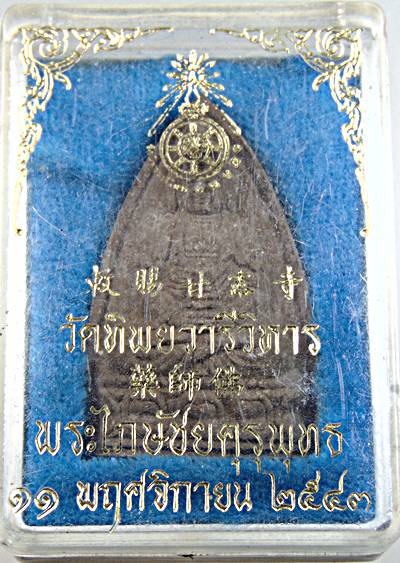 敕賜甘露寺
วัดทิพยวารีวิหาร
藥師佛
พระไภษัชยคุรุพุทธ
๑๑ พฤศจิกายน ๒๕๔๓